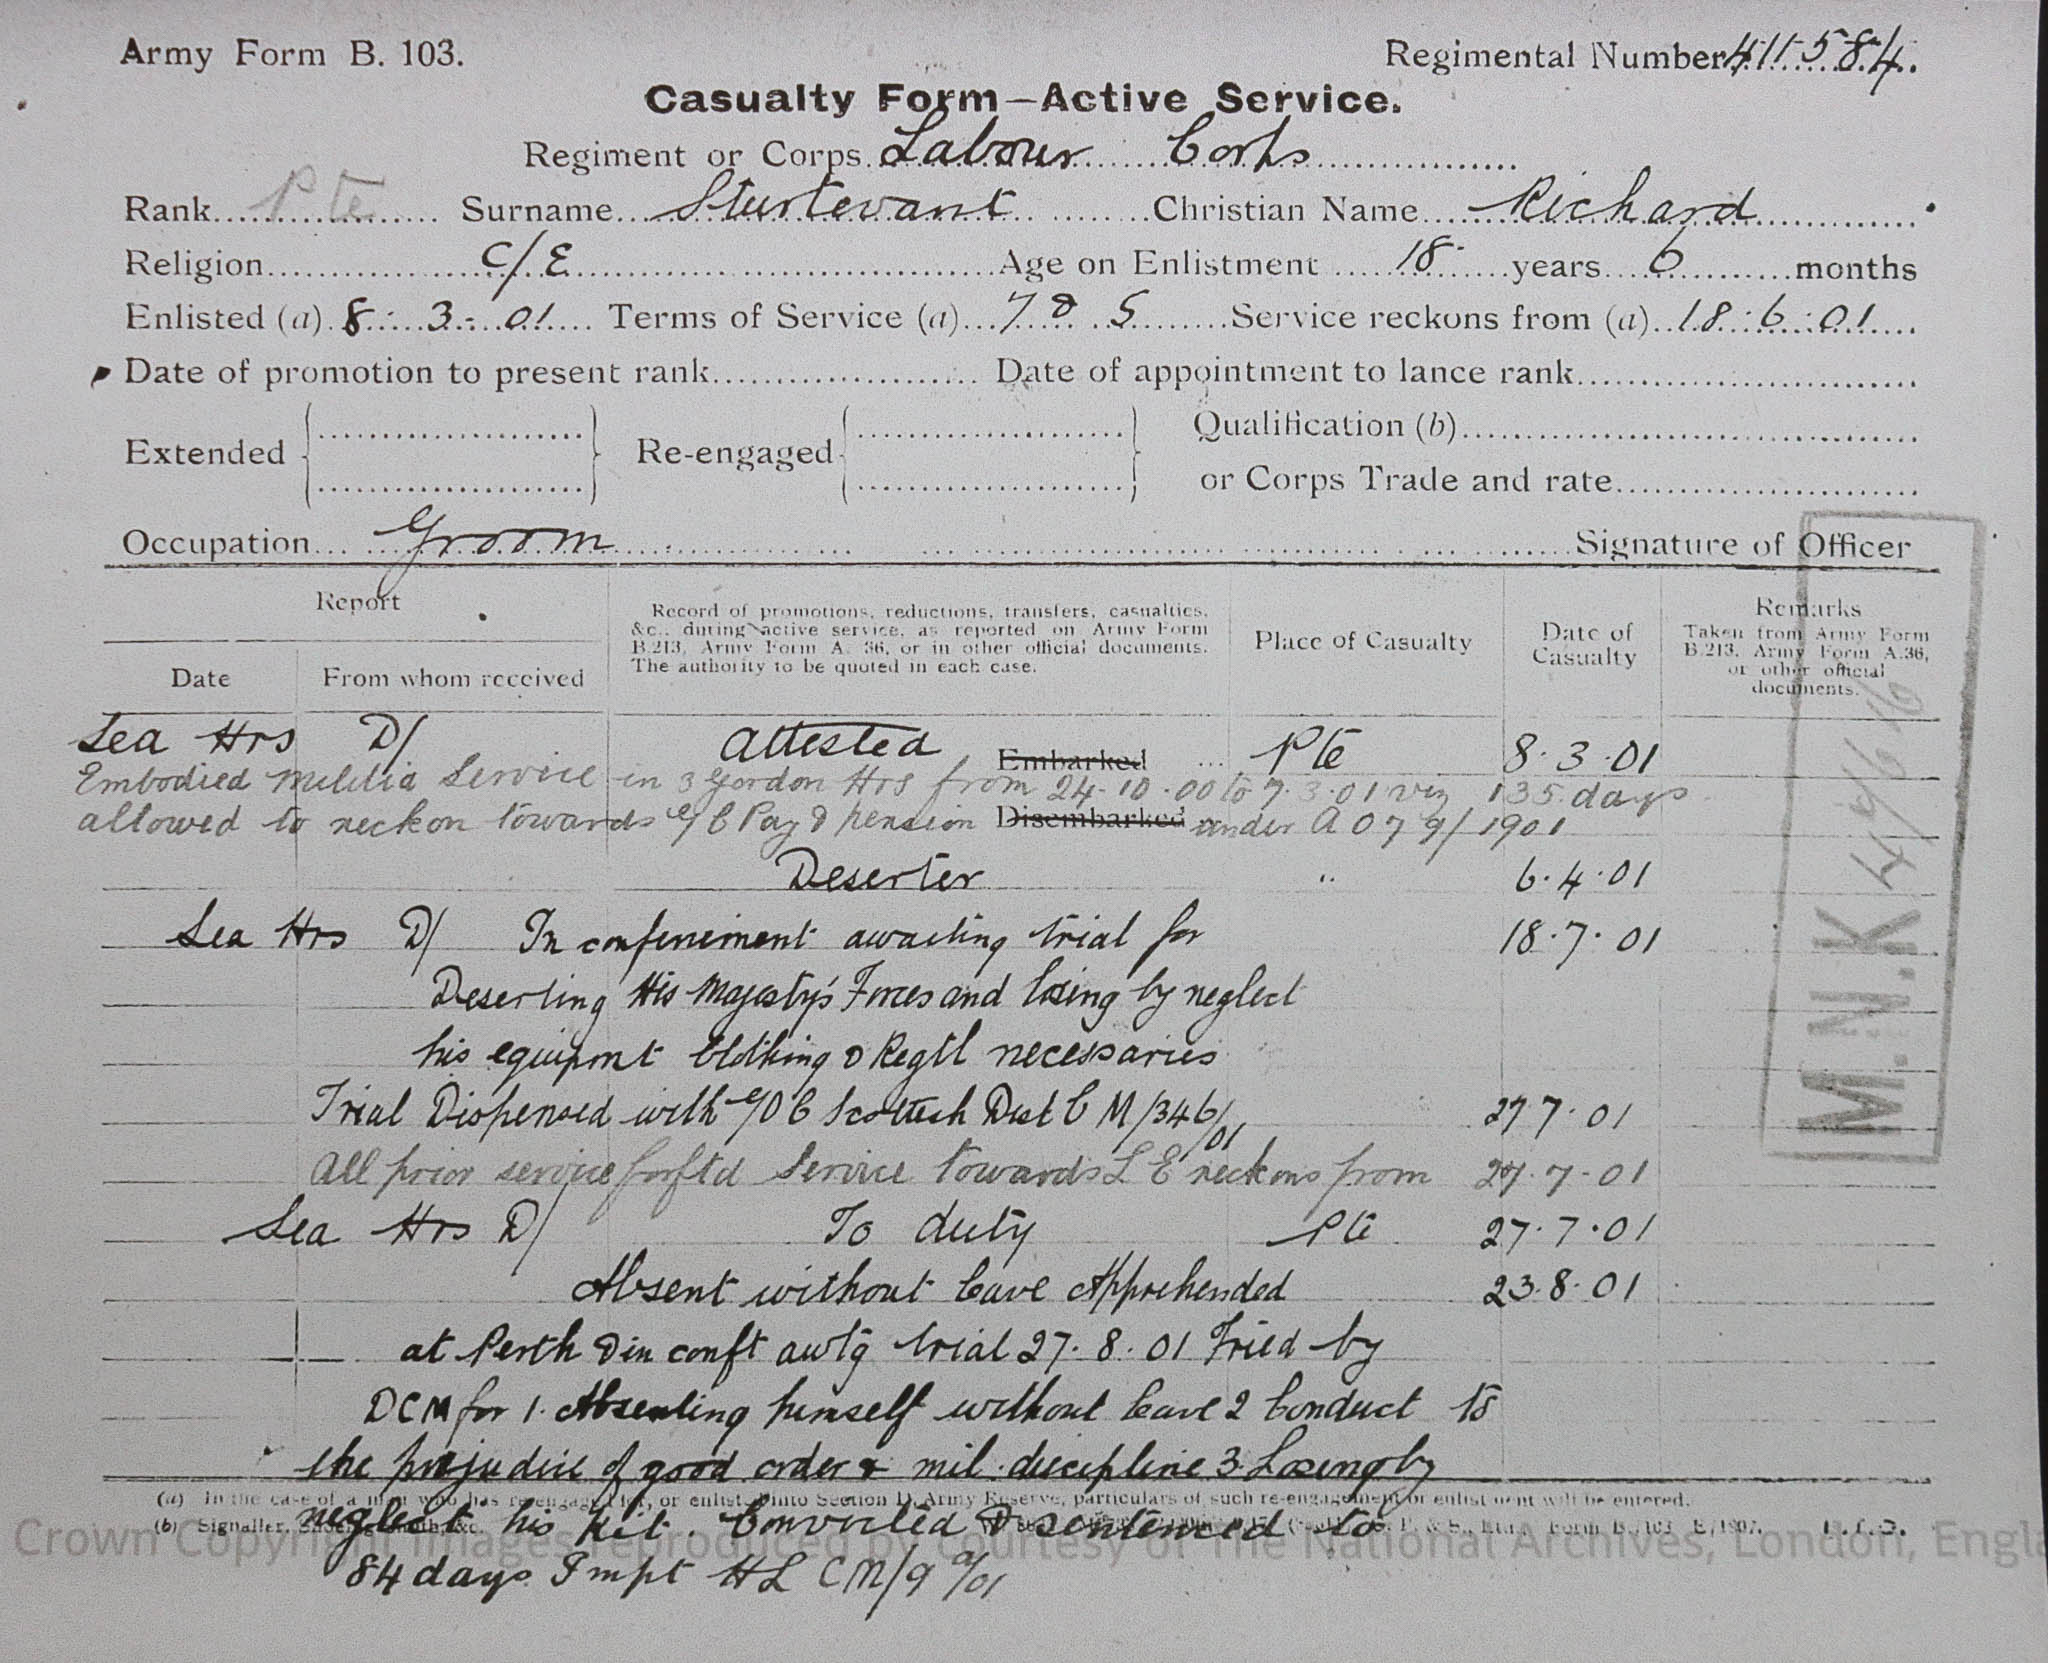 Army Form B. 103.
Regimental Number 411584.
Casualty Form—Active Service.
Regiment or Corps Labour Corps
Rank Pte Surname Sturtevant Christian Name Richard
Religion C/E Age on Enlistment 18 years 6 months
Enlisted (a) 8. 3. 01 Terms of Service (a) 7 & 5 Service reckons from (a) 18.6.01
Date of promotion to present rank Date of appointment to lance rank
Extended Re-engaged Qualification (b)
or Corps Trade and rate
Occupation Groom Signature of Officer
Report
Date From whom received
Record of promotions, reductions, transfers, casualties,
&c., during active service, as reported on Army Form
B.213, Army Form A. 36, or in other official documents.
The authority to be quoted in each case.
Place of Casualty
Date of
Casualty
Remarks
Taken from Army Form
B.213, Army Form A.36,
or other official
documents.
Sea Hrs D/ Attested Embarked Pte 8.3.01
Embodied Militia Service in 3 Gordon Hrs from 24.10.00 to 7.3.01 viz 135 days
allowed to reckon towards G/C Pay & pension Disembarked under A O 79/1901
Deserter " 6.4.01
Sea Hrs D/ In confinement awaiting trial for 18.7.01
Deserting His Majesty's Forces and losing by neglect
his equipmt Clothing & Regtl necessaries
Trial Dispensed with G/O C Scottish Dist C M/346/01 27 7.01
All prior service forftd Service towards L E reckons from 27.7.01
Sea Hrs D/ To duty Pte 27.7.01
Absent without leave Apprehended 23.8.01
at Perth & in conft awtg trial 27.8.01 Tried by
DCM for 1. Absenting himself without leave 2 Conduct to
the prejudice of good order & mil. discipline 3. Losing by
(a) In the case of a man who has re-engaged for, or enlisted into Section D, Army Reserve, particulars of such re-engagement or enlistment will be entered.
neglect his kit. Convicted & sentenced to
(b) Signaller, Shoeing Smith, &c.
84 days Impt HL CM/9
M.N.K
Crown Copyright Images reproduced by courtesy of The National Archives, London, Engla